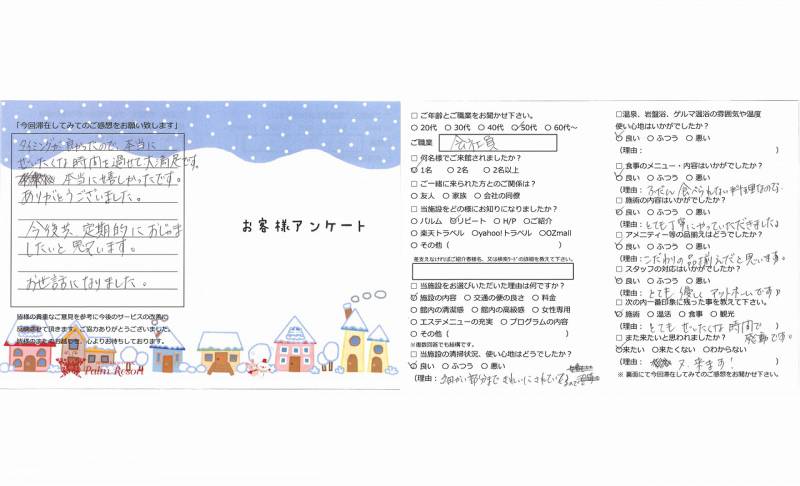 「今回滞在してみてのご感想をお願い致します」
タイミングが良かったので、本当に
ぜいたくな時間を過せて大満足です。
本当に嬉しかったです。
ありがとうございました。
今後共、定期的におじゃま
したいと思います。
お世話になりました。
皆様の貴重なご意見を参考に今後のサービスの改善に
反映させて頂きます。ご協力ありがとうございました。
皆様のまたのお越しを、心よりお待ちしております。
Palm Resort
お客様アンケート
□ ご年齢とご職業をお聞かせ下さい。
○ 20代 ○ 30代 ○ 40代 ○ 50代 ○ 60代～
ご職業 会社員
□ 何名様でご来館されましたか？
○ 1名 ○ 2名 ○ 2名以上
□ ご一緒に来られた方とのご関係は？
○ 友人 ○ 家族 ○ 会社の同僚
□ 当施設をどの様にお知りになりましたか？
○ パルム ○ リピート ○ H/P ○ご紹介
○ 楽天トラベル ○ yahoo!トラベル ○OZmall
○ その他（ ）
差支えなければご紹介者様名、又は検索ワードの詳細を教えて下さい。
□ 当施設をお選びいただいた理由は何ですか？
○ 施設の内容 ○ 交通の便の良さ ○ 料金
○ 館内の清潔感 ○ 館内の高級感 ○ 女性専用
○ エステメニューの充実 ○ プログラムの内容
○ その他（ ）
※複数回答でも結構です。
□ 当施設の清掃状況、使い心地はどうでしたか？
○ 良い ○ ふつう ○ 悪い
（理由： 細かい部分まできれいにされている
□温泉、岩盤浴、ゲルマ温浴の雰囲気や温度
使い心地はいかがでしたか？
○ 良い ○ ふつう ○ 悪い
（理由： ）
□ 食事のメニュー・内容はいかがでしたか？
○ 良い ○ ふつう ○ 悪い
（理由： ふだん食べられない料理なので
□ 施術の内容はいかがでしたか？
○ 良い ○ ふつう ○ 悪い
（理由： とても丁寧にやっていただきました
□ アメニティー等の品揃えはどうでしたか？
○ 良い ○ ふつう ○ 悪い
（理由： こだわりの品揃えだと思います。
□ スタッフの対応はいかがでしたか？
○ 良い ○ ふつう ○ 悪い
（理由： とても優しくアットホームです）
□ 次の内一番印象に残った事を教えて下さい。
○ 施術 ○ 温活 ○ 食事 ○ 観光
（理由： とてもぜいたくな時間で
□ また来たいと思われましたか？
○来たい ○来たくない ○わからない
（理由： 又、来ます！ ）
※ 裏面にて今回滞在してみてのご感想をお聞かせ下さい。